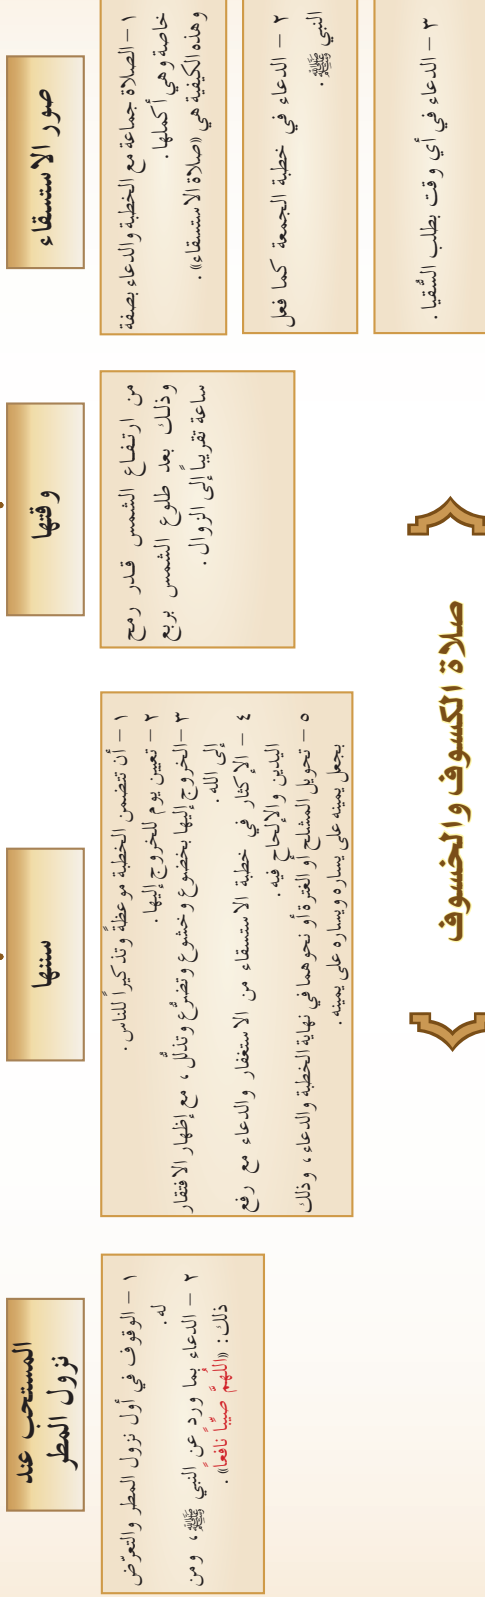 صور الاستسقاء
١ – الصلاة جماعة مع الخطبة والدعاء بصفة
خاصة وهي أكملها .
وهذه الكيفية هي «صلاة الاستسقاء» .
٢ – الدعاء في خطبة الجمعة كما فعل
النبي ﷺ .
٣ – الدعاء في أي وقت بطلب السُّقيا .
وقتها
من ارتفاع الشمس قدر رمح
وذلك بعد طلوع الشمس بربع
ساعة تقريباً إلى الزوال .
سننها
١ – أن تتضمن الخطبة موعظةً وتذكيراً للناس .
٢ – تعيين يوم للخروج إليها .
٣ –الخروج إليها بخضوع وخشوع وتضرُّع وتذلُّل ، مع إظهار الافتقار
إلى الله .
٤ – الإكثار في خطبة الاستسقاء من الاستغفار والدعاء مع رفع
اليدين والإلحاح فيه .
٥ – تحويل المشلح أو الغترة أو نحوهما في نهاية الخطبة والدعاء ، وذلك
بجعل يمينه على يساره ويساره على يمينه .
المستحب عند
نزول المطر
١ – الوقوف في أول نزول المطر والتعرّض
له .
٢ – الدعاء بما ورد عن النبي ﷺ ، ومن
ذلك : «اللهمَّ صيّبًا نافعاً» .
صلاة الكسوف والخسوف